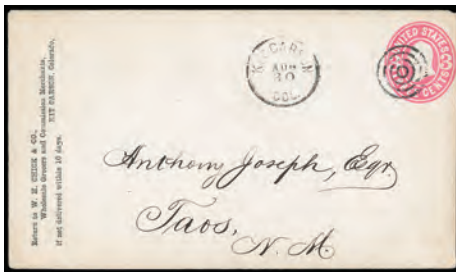 Return to W. H. CHICK & CO.,
Wholesale Grocers and Commission Merchants,
KIT CARSON, Colorado,
if not delivered within 10 days.
KIT CARSON
AUG
30
COL.
UNITED STATES
CENTS
Anthony Joseph, Eqr
Taos,
N. M